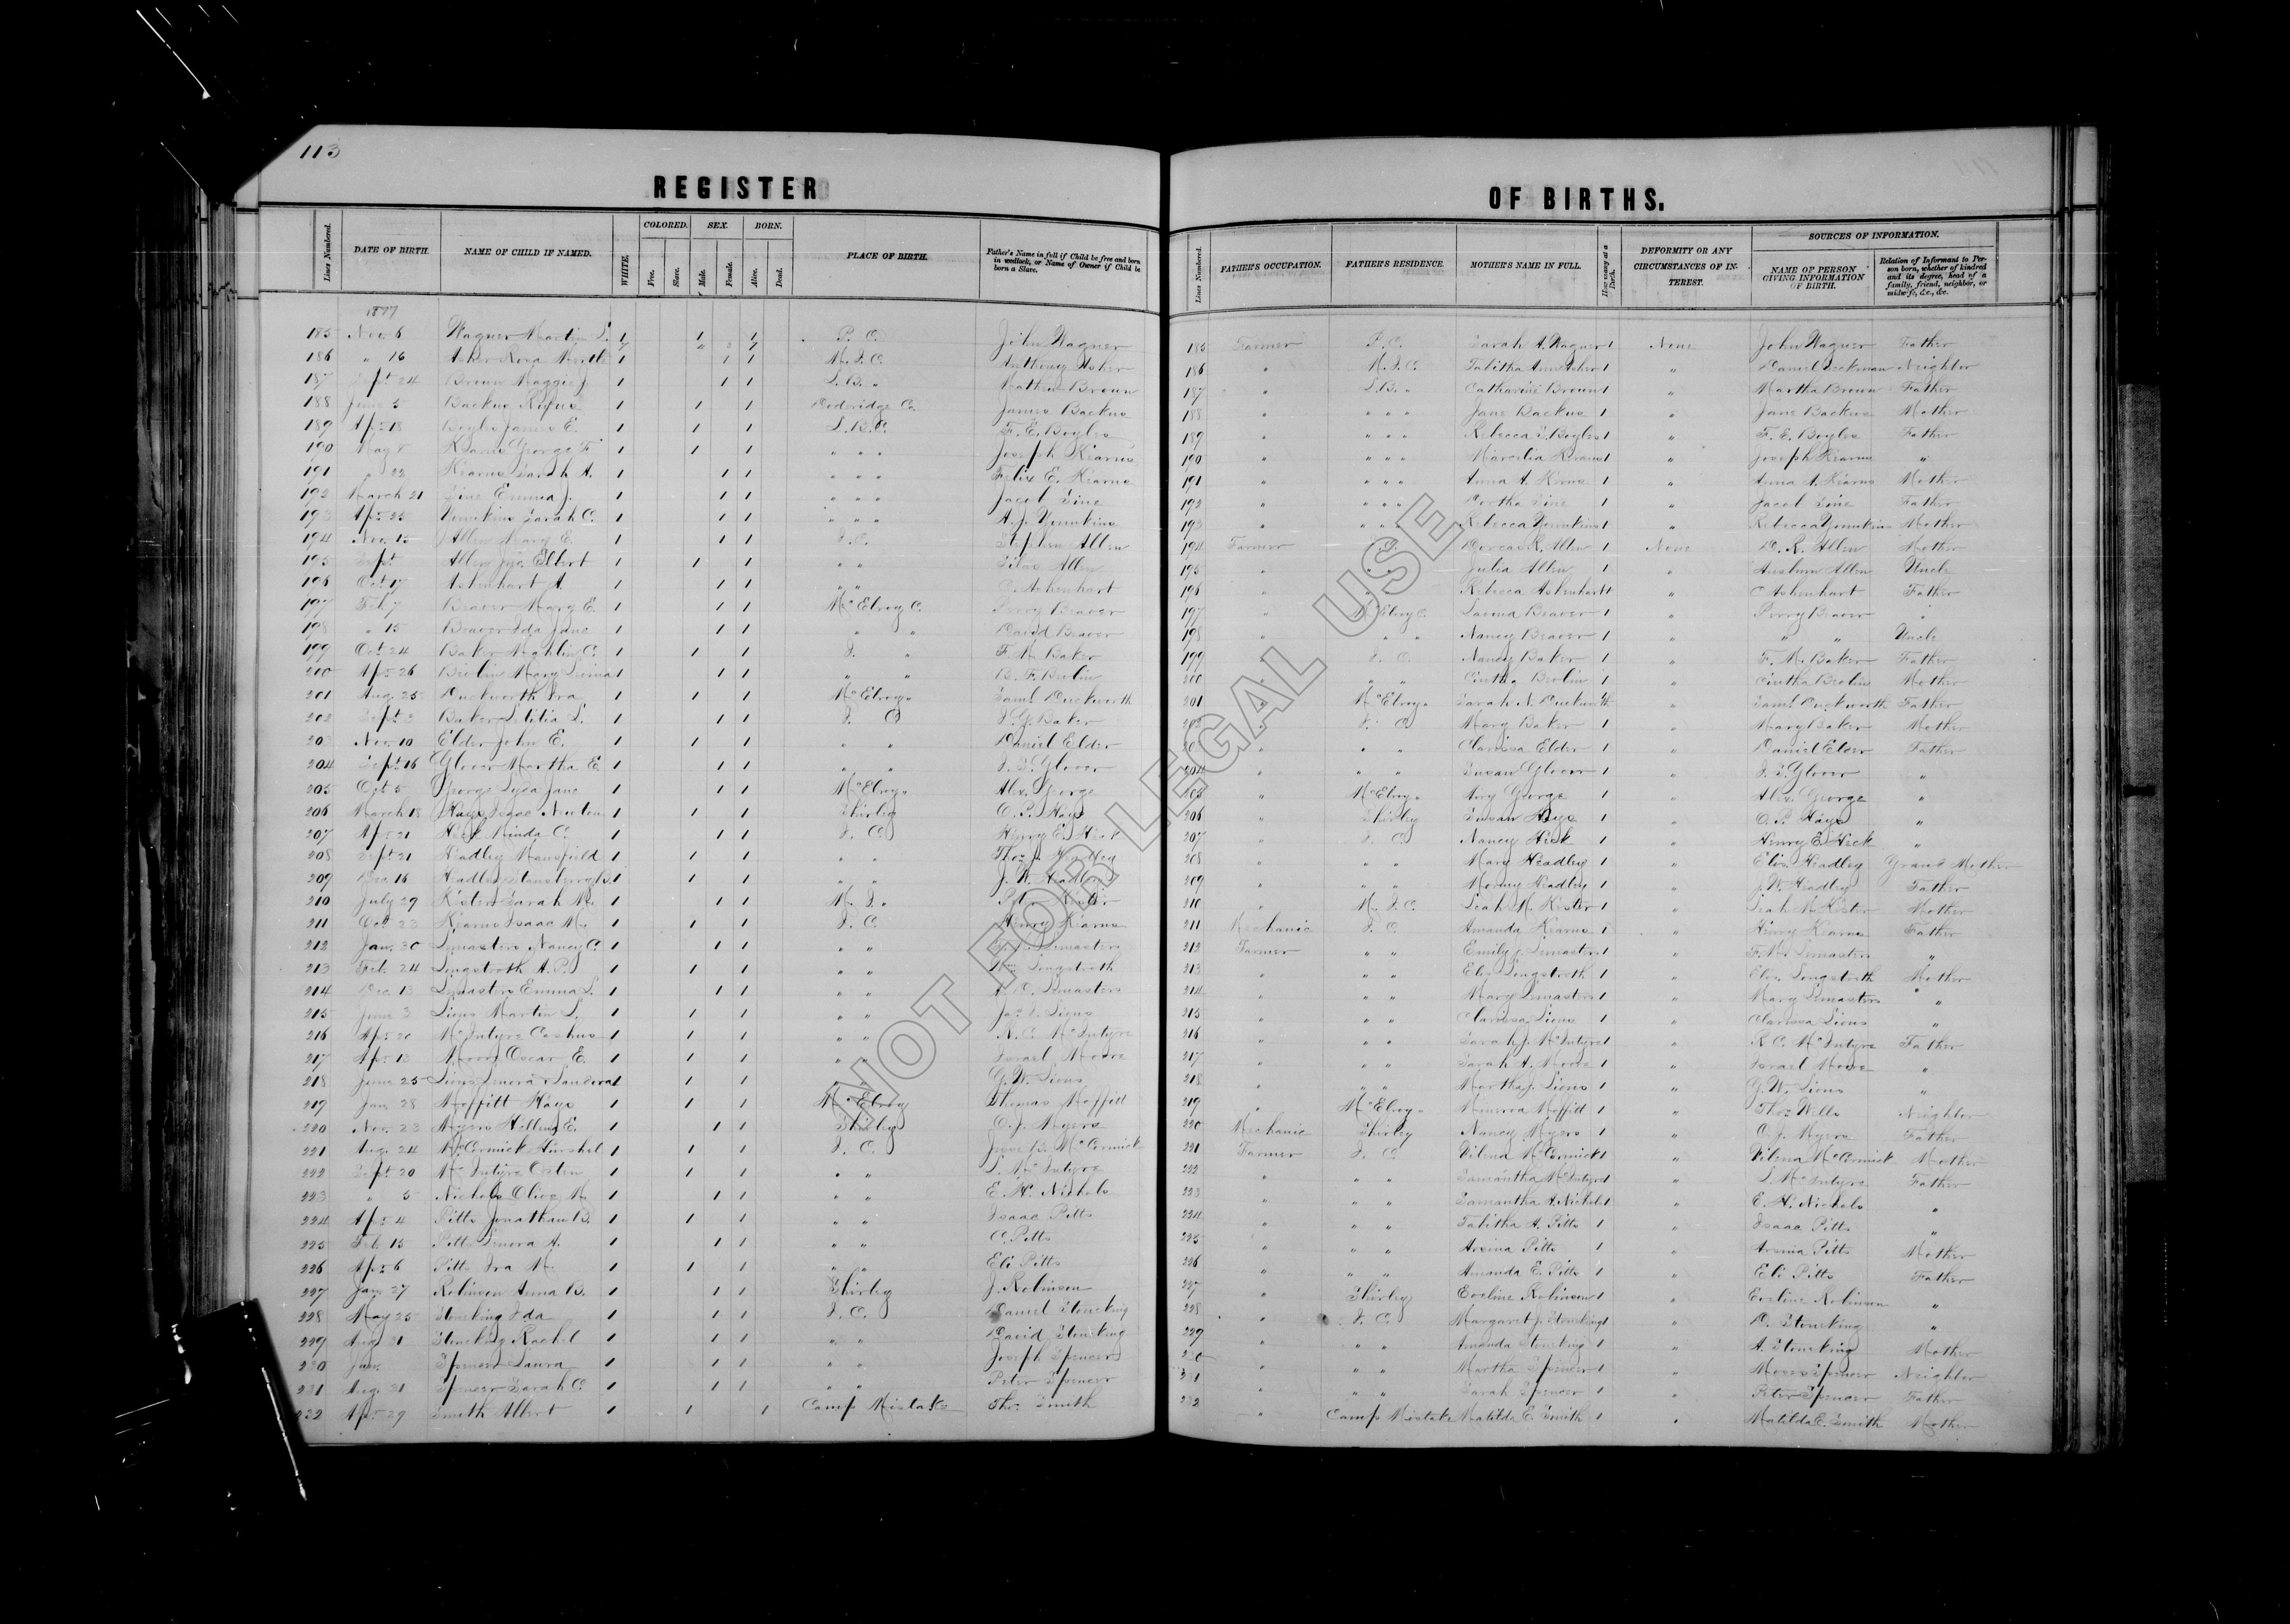 113
REGISTER OF BIRTHS.
Lines Numbered. DATE OF BIRTH. NAME OF CHILD IF NAMED. WHITE. COLORED. Free. Slave. SEX. Male. Female. BORN. Alive. Dead. PLACE OF BIRTH. Father's Name in full if Child be free and born in wedlock, or Name of Owner if Child be born a Slave.
Lines Numbered. FATHER'S OCCUPATION. FATHER'S RESIDENCE. MOTHER'S NAME IN FULL. How many at a Birth. DEFORMITY OR ANY CIRCUMSTANCES OF INTEREST. SOURCES OF INFORMATION. NAME OF PERSON GIVING INFORMATION OF BIRTH. Relation of Informant to Person born, whether of kindred and its degree, head of a family, friend, neighbor, or midwife, &c., &c.
1877
185 Nov 6 Wagner Martin L. 1 1 1 P. C. John Wagner 185 Farmer P. C. Sarah A. Wagner 1 None John Wagner Father
186 " 16 Asher Nora Myrtle 1 1 1 M. I. C. Anthony Asher 186 " M. I. C. Tabitha Ann Asher 1 " Daniel Neighbor
187 Sept 24 Brown Maggie J. 1 1 1 L. B. " Mathew Brown 187 " L. B. " Catharine Brown 1 " Martha Brown Father
188 June 5 Backus Rufus 1 1 1 Dodridge C. James Backus 188 " " " " Jane Backus 1 " Jane Backus Mother
189 Apr 18 Boyles James E. 1 1 1 L. B. C. F. E. Boyles 189 " " " " Rebecca S. Boyles 1 " F. E. Boyles Father
190 May 8 Kearns George F. 1 1 1 " " " Joseph Kearns 190 " " " " Marcelia Kearns 1 " Joseph Kearns "
191 " 22 Kearns Sarah A. 1 1 1 " " " Felix E. Kearns 191 " " " " Anna A. Kearns 1 " Anna A. Kearns Mother
192 March 21 Sine Emma J. 1 1 1 " " " Jacob Sine 192 " " " " Sine 1 " Jacob Sine Father
193 Apr 25 Yomkins Sarah C. 1 1 1 " " " A. J. Yomkins 193 " " " " Rebecca Yomkins 1 " Rebecca Yomkins Mother
194 Nov. 15 Allen Mary E. 1 1 1 I. C. Stephen Allen 194 Farmer Dorcas R. Allen 1 None D. R. Allen Mother
195 Sept Allen Elbert 1 1 1 " " Silas Allen 195 " Julia Allen 1 " Allen Uncle
196 Oct 17 Ashenhart A. 1 1 1 " " C. Ashenhart 196 " Rebecca Ashenhart 1 " C. Ashenhart Father
197 Feb 7 Beaver Mary E. 1 1 1 McElroy C. Perry Beaver 197 " McElroy C. Beaver 1 " Perry Beaver "
198 " 15 Beaver Ida Jane 1 1 1 " " David Beaver 198 " " " Nancy Beaver 1 " " " Uncle
199 Oct 24 Baker C. 1 1 1 I. " F. M. Baker 199 " I. C. Nancy Baker 1 " F. M. Baker Father
200 Apr 26 Brolin Mary 1 1 1 " " B. F. Brolin 200 " " " Cintha Brolin 1 " Cintha Brolin Mother
201 Aug. 25 Duckworth Ira 1 1 1 McElroy " Saml Duckworth 201 " McElroy " Sarah N. Duckworth 1 " Saml Duckworth Father
202 Sept 3 Baker Letitia L. 1 1 1 I. C. Baker 202 " I. C. Mary Baker 1 " Mary Baker Mother
203 Nov. 10 Elder John E. 1 1 1 " " Daniel Elder " " " Clarissa Elder 1 " Daniel Elder Father
204 Sept 16 Glover Martha E. 1 1 1 " " Glover 204 " " " Susan Glover 1 " Glover "
205 Oct 5 George Jane 1 1 1 McElroy " Alex. George " McElroy " Amy George 1 " Alex. George "
206 March 18 Hays Isaac Newton 1 1 1 Shirley O. P. Hays 206 " Shirley Susan Hays 1 " O. P. Hays "
207 Apr 21 Heck Minda C. 1 1 1 I. C. Henry E. Heck 207 " I. C. Nancy Heck 1 " Henry E. Heck "
208 Sept 21 Headley Mansfield 1 1 1 " " Thos. J. Headley 208 " " " Mary Headley 1 " Eliz. Headley Grand Mother
209 Dec 16 Headley Stansberry B. 1 1 1 " " J. W. Headley 209 " " " Headley 1 " J. W. Headley Father
210 July 29 Kister Sarah M. 1 1 1 M. I. " Kister 210 " M. I. C. Leah M. Kister 1 " Leah M. Kister Mother
211 Oct 23 Kearns Isaac M. 1 1 1 I. C. Henry Kearns 211 Mechanic I. C. Amanda Kearns 1 " Henry Kearns Father
212 Jan. 30 Lemasters Nancy C. 1 1 1 " " Lemasters 212 Farmer " " Emily J. Lemasters 1 " F. M. Lemasters "
213 Feb. 24 Longstroth A. P. 1 1 1 " " Wm Longstroth 213 " " " Eliz. Longstroth 1 " Eliz. Longstroth Mother
214 Dec. 13 Lemasters Emma L. 1 1 1 " " D. Lemasters 214 " " " Mary Lemasters 1 " Mary Lemasters "
215 June 3 Lions Martin L. 1 1 1 " " Jas. Lions 215 " " " Clarissa Lions 1 " Clarissa Lions "
216 Apr. 20 McIntyre 1 1 1 " " N. C. McIntyre 216 " " " Sarah J. McIntyre 1 " McIntyre Father
217 Apr. 13 Moore Oscar E. 1 1 1 " " Israel Moore 217 " " " Sarah A. Moore 1 " Israel Moore "
218 June 25 Lions Lenora 1 1 1 G. W. Lions 218 " " " Martha J. Lions 1 " G. W. Lions "
219 Jan. 28 Moffitt Hays 1 1 1 McElroy Thomas Moffitt 219 " McElroy " Minerva Moffitt 1 " Thos. Wells Neighbor
220 Nov. 23 Myers E. 1 1 1 Shirley O. J. Myers 220 Mechanic Shirley Nancy Myers 1 " O. J. Myers Father
221 Aug. 24 McCormick Hurshel 1 1 1 I. C. B. McCormick 221 Farmer I. C. Vilena McCormick 1 " Vilena McCormick Mother
222 Sept 20 McIntyre 1 1 1 " " L. McIntyre 222 " " " Samantha McIntyre 1 " L. McIntyre Father
223 " 5 Nichols Olive M. 1 1 1 " " E. H. Nichols 223 " " " Samantha A. Nichols 1 " E. H. Nichols "
224 Apr 4 Pitts Jonathan B. 1 1 1 " " Isaac Pitts 224 " " " Tabitha A. Pitts 1 " Isaac Pitts "
225 Feb. 15 Pitts Lenora A. 1 1 1 " " C. Pitts 225 " " " Arsina Pitts 1 " Arsina Pitts Mother
226 Apr 6 Pitts Ira M. 1 1 1 " " Eli Pitts 226 " " " Amanda E. Pitts 1 " Eli Pitts Father
227 Jan. 27 Robinson Anna B. 1 1 1 Shirley J. Robinson 227 " Shirley Eveline Robinson 1 " Eveline Robinson "
228 May 25 Stoneking Ida 1 1 1 I. C. Daniel Stoneking 228 " I. C. Margaret J. Stoneking 1 " D. Stoneking "
229 Aug 21 Stoneking Rachel 1 1 1 " " David Stoneking 229 " " " Amanda Stoneking 1 " A. Stoneking Mother
230 Jan. Spencer Laura 1 1 1 " " Joseph Spencer 230 " " " Martha Spencer 1 " Moses Spencer Neighbor
231 Aug. 31 Spencer Sarah C. 1 1 1 " " Peter Spencer 231 " " " Sarah Spencer 1 " Peter Spencer Father
232 Apr. 29 Smith Albert 1 1 1 Camp Mistake Thos. Smith 232 " Camp Mistake Matilda E. Smith 1 " Matilda E. Smith Mother
NOT FOR LEGAL USE